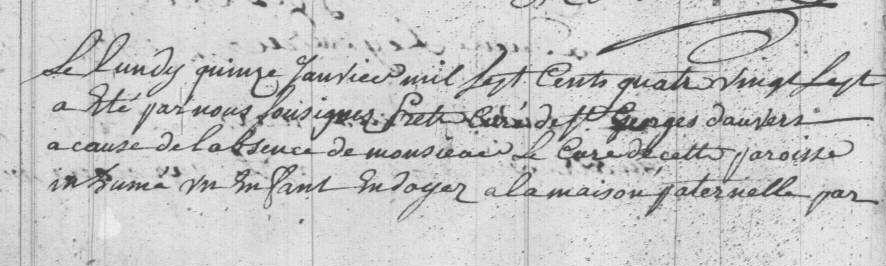 Le Lundy quinze Janvier mil sept Cents quatre vingt sept
a Eté par nous sousignés prêtre Curé de st Georges dauvers
a cause de labsence de monsieur Le Curé de cette paroisse
inhumé un Enfant Endoyez a la maison paternelle par